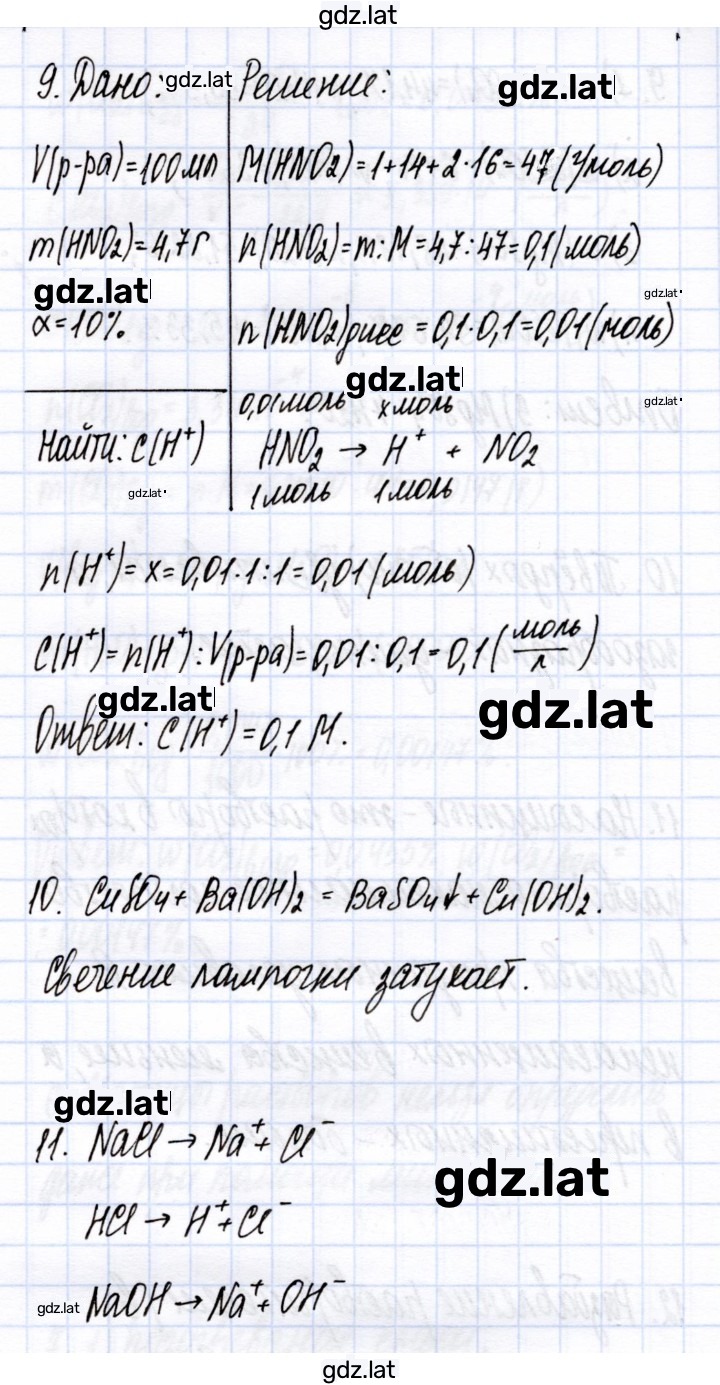 gdz.lat
9. Дано: gdz.lat Решение: gdz.lat
V(р-ра)=100мл M(HNO2)=1+14+2·16=47(г/моль)
m(HNO2)=4,7г n(HNO2)=m:M=4,7:47=0,1(моль)
gdz.lat gdz.lat
α=10% n(HNO2)дисс=0,1·0,1=0,01(моль)
gdz.lat
0,01моль xмоль gdz.lat
Найти: C(H⁺) HNO2 → H⁺ + NO2
gdz.lat 1моль 1моль
n(H⁺)=x=0,01·1:1=0,01(моль)
C(H⁺)=n(H⁺):V(р-ра)=0,01:0,1=0,1(моль/л)
gdz.lat gdz.lat
Ответ: C(H⁺)=0,1 M.
10. CuSO4+Ba(OH)2=BaSO4↓+Cu(OH)2.
Свечение лампочки затухает.
gdz.lat
11. NaCl→Na⁺+Cl⁻
gdz.lat
HCl→H⁺+Cl⁻
gdz.lat NaOH→Na⁺+OH⁻
gdz.lat